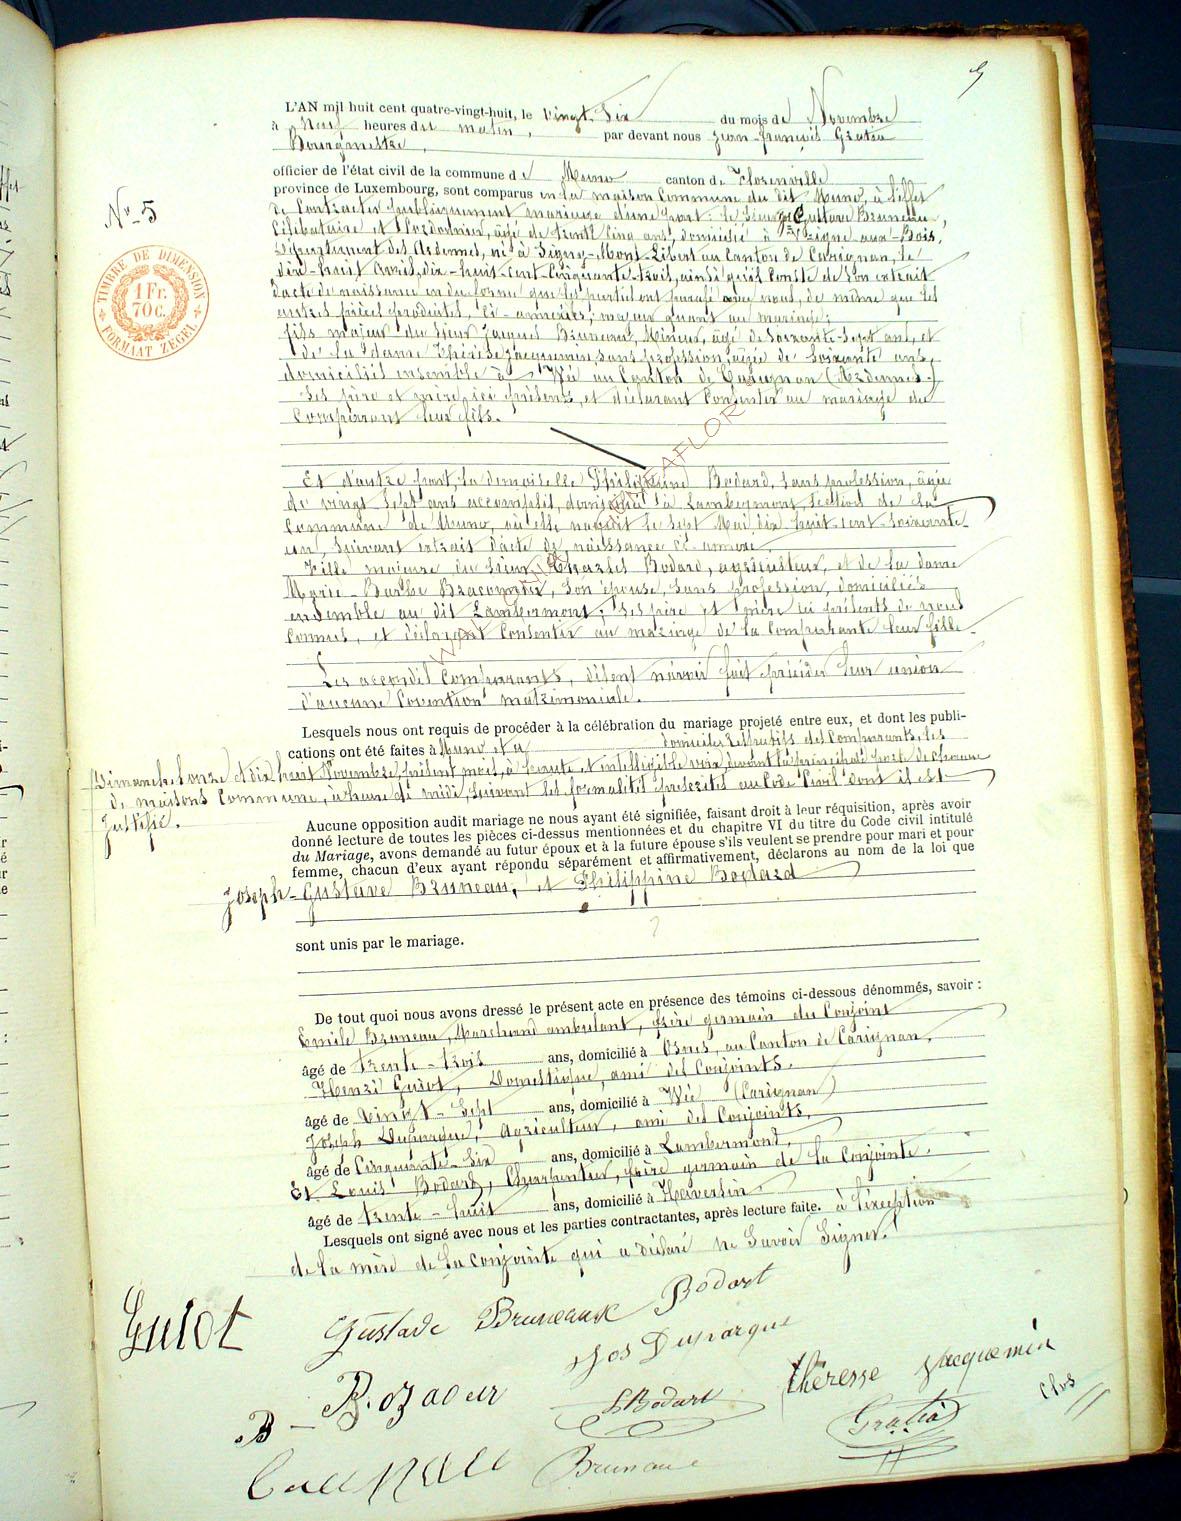 5
L'AN mil huit cent quatre-vingt-huit, le vingt Six du mois de Novembre
à Neuf heures du matin, par devant nous Jean-François Gratia
Bourgmestre,
officier de l'état civil de la commune de Muno canton de Florenville
province de Luxembourg, sont comparus en la maison Commune du dit Muno, à l'effet
N° 5
de Contracter publiquement mariage d'une part: le Sieur Gustave Bruneau,
Célibataire et Cordonnier, âgé de trente cinq ans, domicilié à Vrigne-aux-Bois,
Département des Ardennes, né à Signy-Mont-Libert au Canton de Carignan, le
dix-huit Avril, dix-huit cent Cinquante-trois, ainsi qu'il Conste de son extrait
d'acte de naissance en due forme que les parties ont parafé avec nous, de même que les
autres pièces produites, ci-annexées; majeur quant au mariage;
TIMBRE DE DIMENSION
1 Fr.
70 C.
FORMAAT ZEGEL
fils majeur du Sieur Jacques Bruneau, Mineur, âgé de Soixante-Sept ans, et
de la Dame Thérèse Jacquemin, sans profession, âgée de Soixante ans,
domiciliés ensemble à Wé au Canton de Carignan (Ardennes.)
Ses père et mère, ici présents, et déclarant Consentir au mariage du
Comparant leur fils.
Et d'autre part, la demoiselle Philippine Bodard, sans profession, âgée
de vingt-Sept ans accomplis, domiciliée à Lambermont, Section de la
Commune de Muno, où elle naquit le Sept Mai, dix-huit-cent-Soixante-
un, suivant extrait d'acte de naissance ci-annexé.
Fille majeure du Sieur Charles Bodard, agriculteur, et de la dame
Marie-Barbe Braconnier, Son épouse, sans profession, domiciliés
ensemble au dit Lambermont; ses père et mère ici présents de nous
Connus, et déclarant Consentir au mariage de la Comparante leur fille.
Les accordés Comparants, disent n'avoir fait précéder leur union
d'aucune Convention matrimoniale.
Lesquels nous ont requis de procéder à la célébration du mariage projeté entre eux, et dont les publi-
cations ont été faites à Muno et à domiciles respectifs des Comparants, les
Dimanches onze et dix huit Novembre, présent mois, à haute et intelligible voix, devant la principale porte de chacune
de maisons Commune, à heure de midi, Suivant les formalités prescrites au Code Civil dont il est
Justifié.
Aucune opposition audit mariage ne nous ayant été signifiée, faisant droit à leur réquisition, après avoir
donné lecture de toutes les pièces ci-dessus mentionnées et du chapitre VI du titre du Code civil intitulé
du Mariage, avons demandé au futur époux et à la future épouse s'ils veulent se prendre pour mari et pour
femme, chacun d'eux ayant répondu séparément et affirmativement, déclarons au nom de la loi que
Joseph-Gustave Bruneau, et Philippine Bodard
sont unis par le mariage.
De tout quoi nous avons dressé le présent acte en présence des témoins ci-dessous dénommés, savoir :
Emile Bruneau, Marchand ambulant, frère germain du Conjoint
âgé de trente-trois ans, domicilié à Osnes, au Canton de Carignan,
Henri Guiot, Domestique, ami des Conjoints.
âgé de Vingt-Sept ans, domicilié à Wé (Carignan)
Joseph Duparque, Agriculteur, ami des Conjoints,
âgé de Cinquante-Six ans, domicilié à Lambermont,
Et Louis Bodard, Charpentier, frère germain de la Conjointe.
âgé de trente-huit ans, domicilié à Haversin.
Lesquels ont signé avec nous et les parties contractantes, après lecture faite. à l'exception
de la mère de la Conjointe qui a déclaré ne Savoir Signer.
Guiot
Gustave Bruneaux
Bodart
Jos Duparque
Thèresse Jacquemin
L Bodart
Gratia
Bruneau